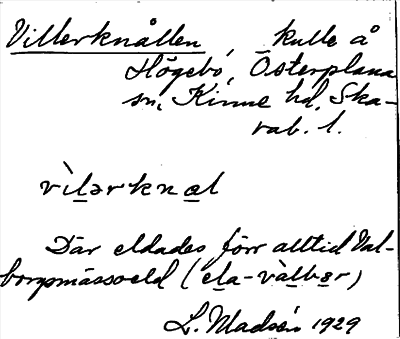 Villerknallen, kulle å
Högebo, Österplana
sn, Kinne hd, Ska-
rab. l.
vìlərknal
Där eldades förr alltid Val-
borgsmässoeld (ela-vàlbər)
L. Madsén 1929